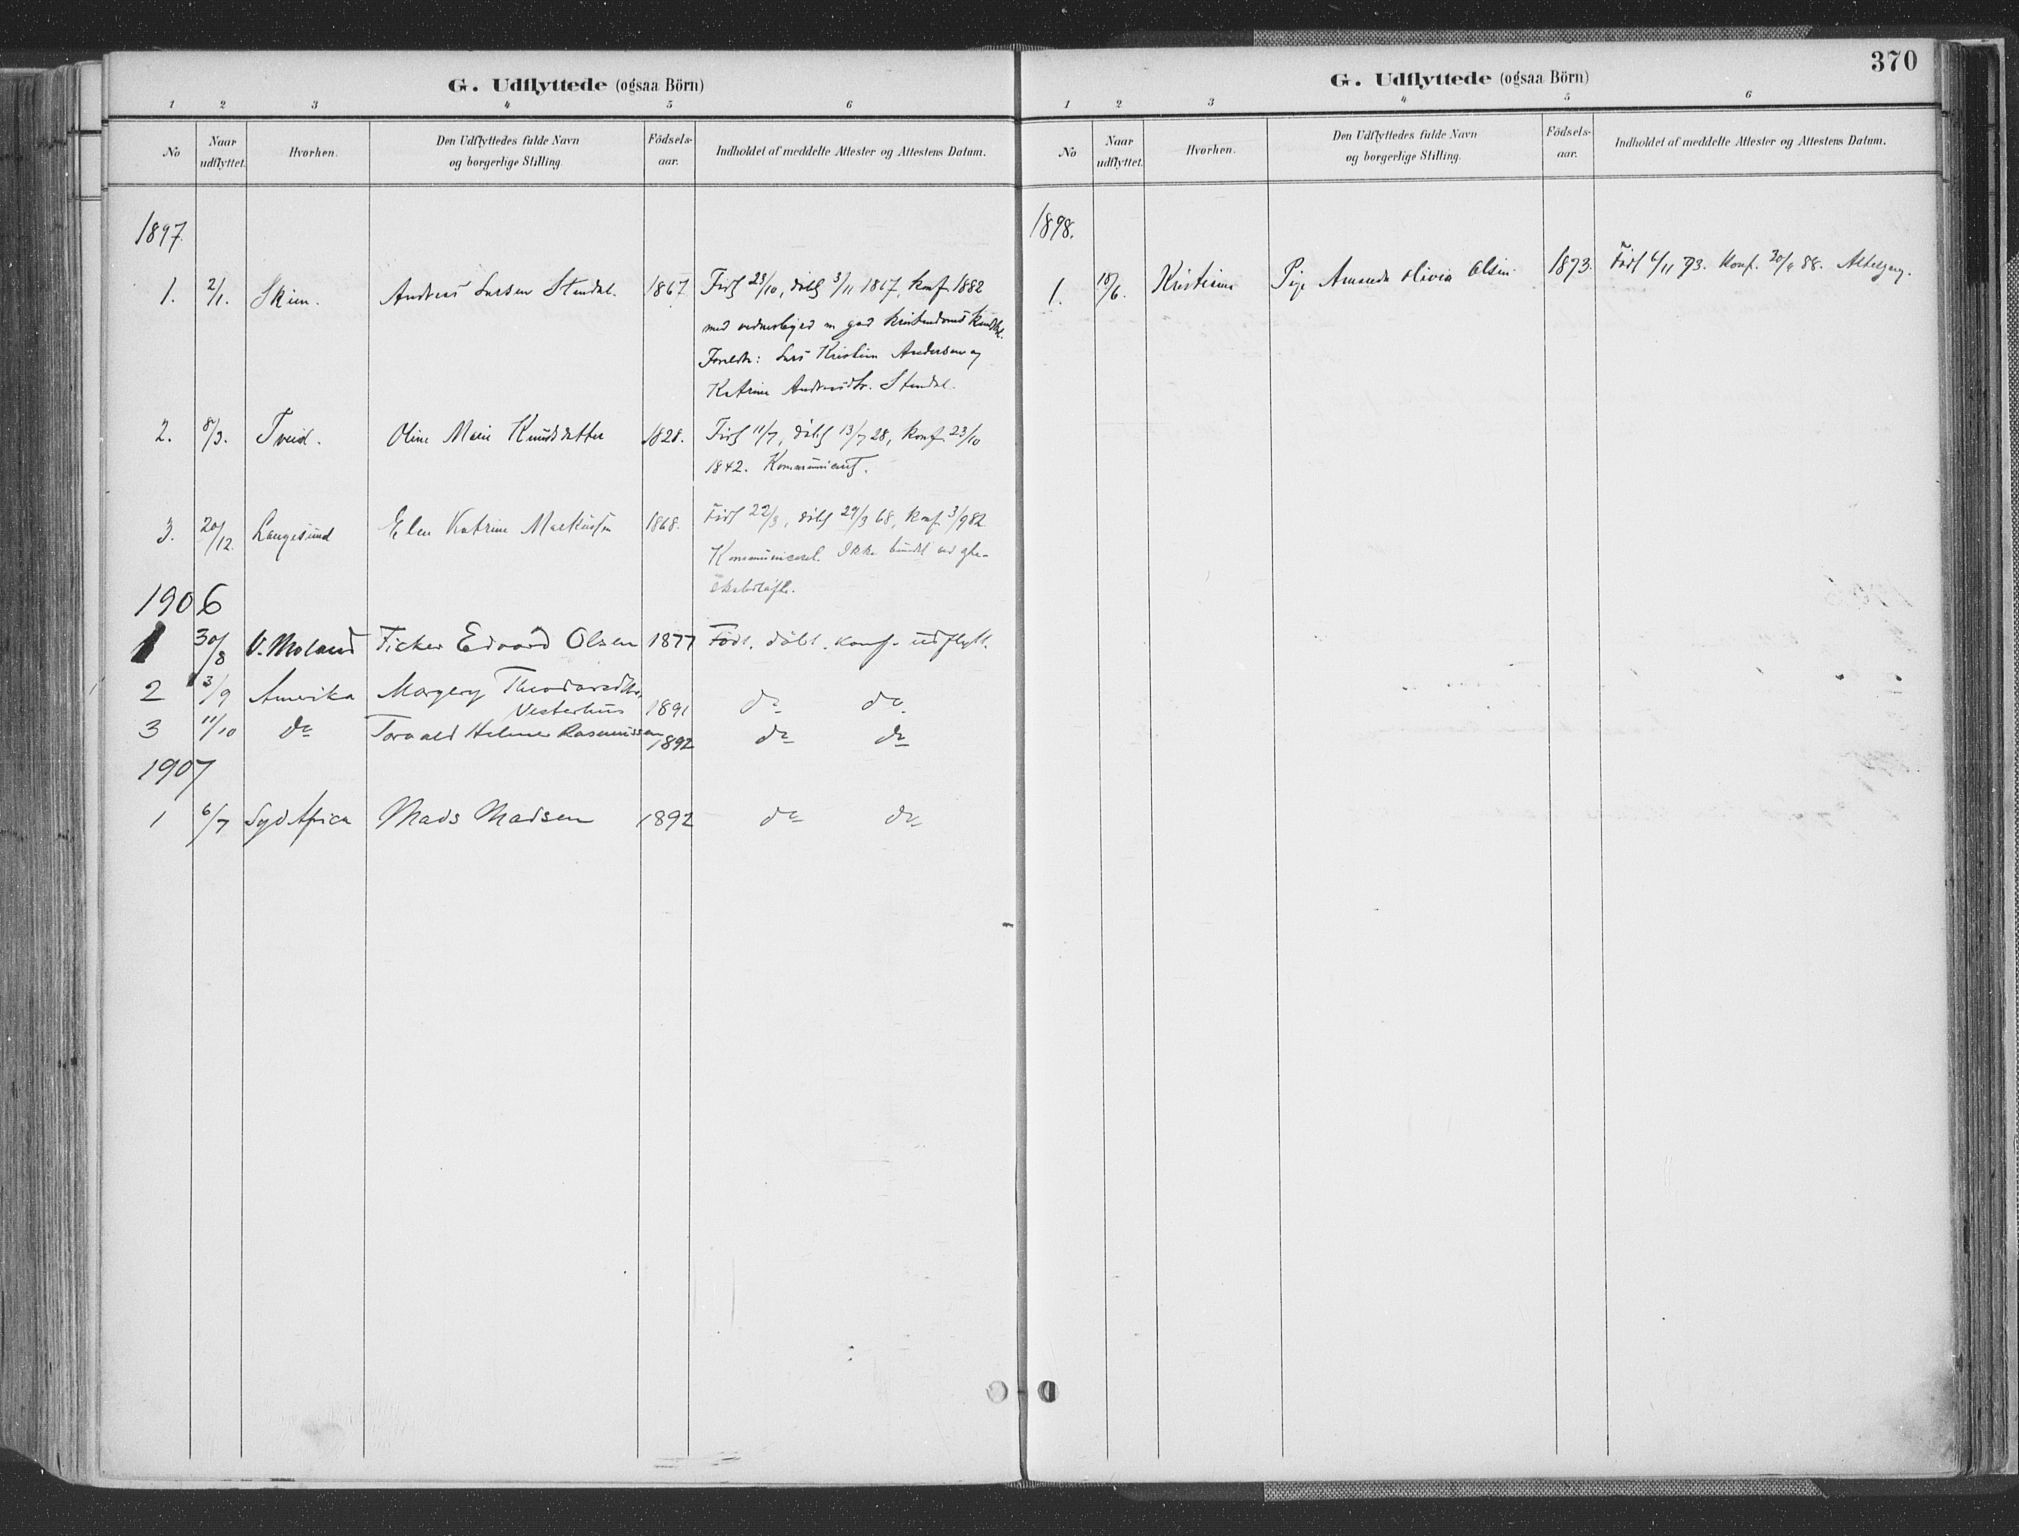 G. Udflyttede (ogsaa Börn)
1 2 3 4 5 6
No Naar udflyttet. Hvorhen. Den Udflyttedes fulde Navn og borgerlige Stilling. Födsels-aar. Indholdet af meddelte Attester og Attestens Datum.
1897.
1. 2/1. Skien. Andreas Larsen Stendal. 1867. Født 23/10, døbt 3/11 1867, konf. 1882
med god kristendoms kundsk.
Foreldr: Lars Kristian Andersen og
Katrine Andreasdtr. Stendal.
2. 8/3. Tveid. Oline Marie Knudsdatter 1828. Født 11/7, døbt 13/7 28, konf. 23/10
1842. Kommunicant.
3. 20/12. Langesund Elen Katrine Markussen 1868. Født 22/3, døbt 29/3 68, konf. 3/9 82
Kommuniceret. Ikke bundet ved gte-
skabsløfte.
1906
1 30/8 V. Moland Ticker Edvard Olsen 1877 Født. døbt. konf. udflytt.
2 3/9 Amerika Margery Theodorsdtr.
Vesterhus 1891 do do
3 11/10 do Torvald Helmer Rasmussen 1892 do do
1907
1 6/7 Syd Africa Mads Madsen 1892 do do
370
G. Udflyttede (ogsaa Börn)
1 2 3 4 5 6
No Naar udflyttet. Hvorhen. Den Udflyttedes fulde Navn og borgerlige Stilling. Födsels-aar. Indholdet af meddelte Attester og Attestens Datum.
1898.
1. 18/6. Kristiania Pige Amanda Olivia Olsen. 1873. Født 6/11 73. Konf. 30/9 88. Altergang.